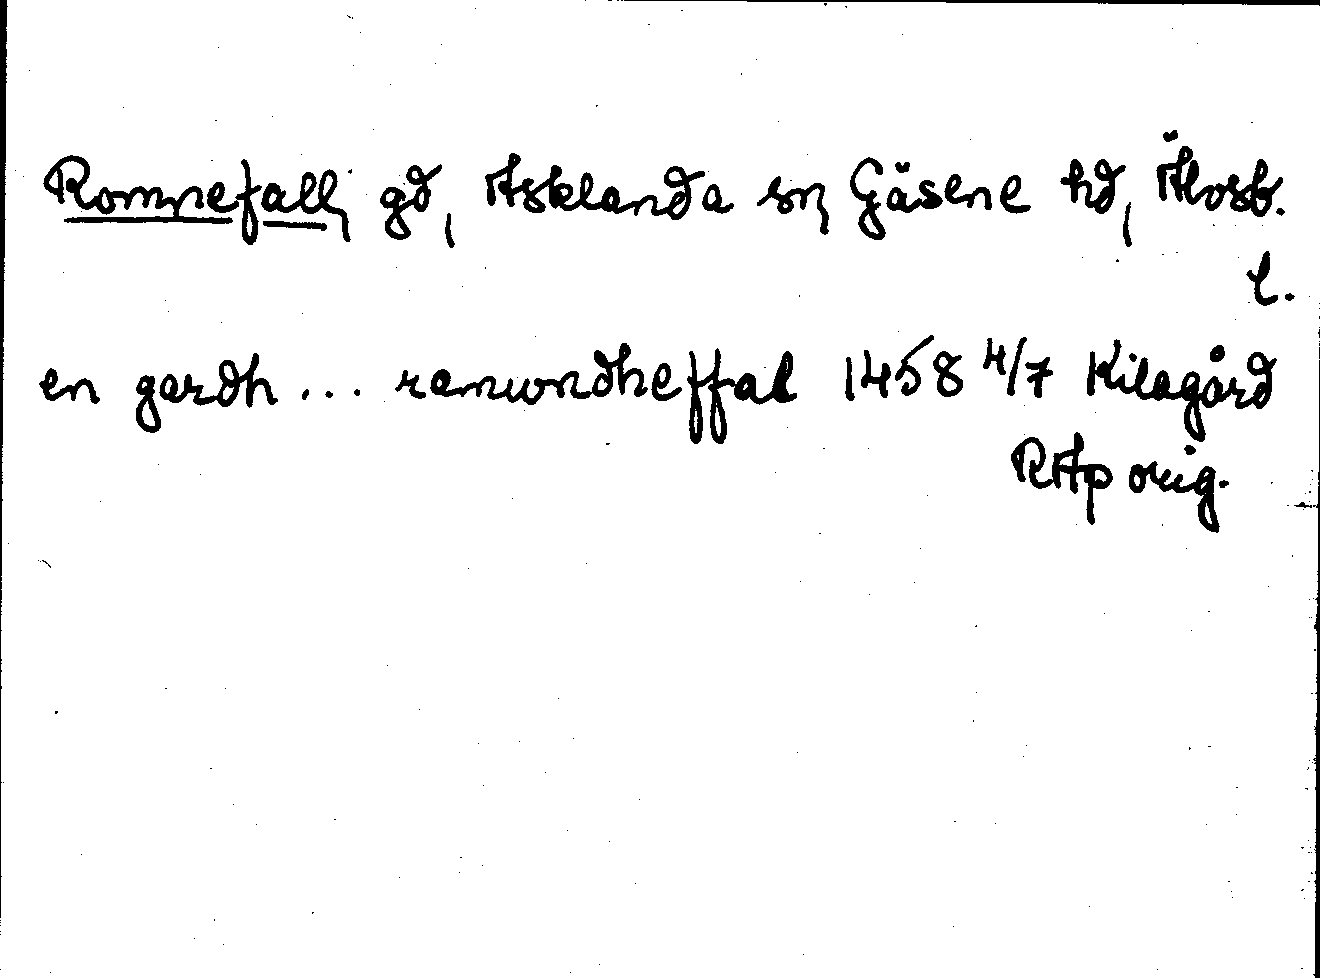 Romnefall, gd, Asklanda sn, Gäsene hd, Älvsb.
l.
en gardh ... ramwndheffal 1458 4/7 Kilagård
RAp orig.